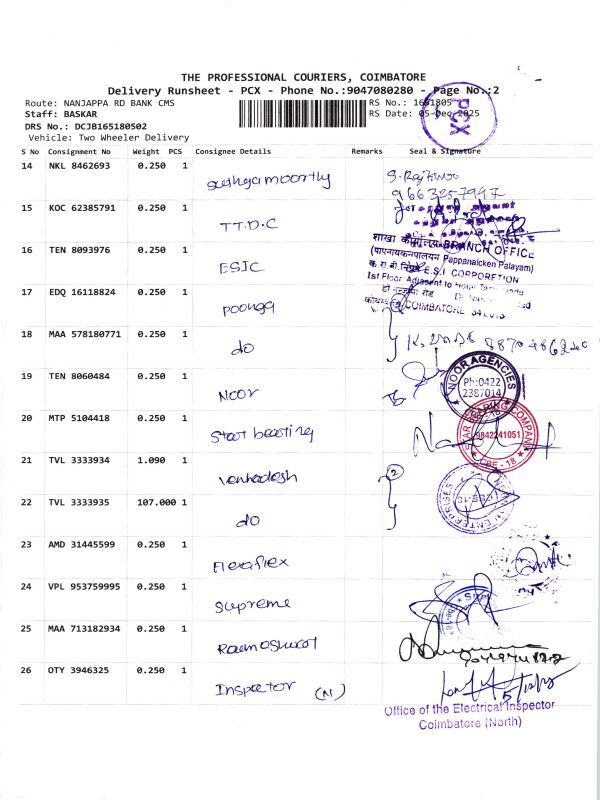 THE PROFESSIONAL COURIERS, COIMBATORE
Delivery Runsheet - PCX - Phone No.:9047080280 - Page No.:2
Route: NANJAPPA RD BANK CMS
RS No.: 1651805
Staff: BASKAR
RS Date: 05-Dec-2025
DRS No.: DCJB165180502
Vehicle: Two Wheeler Delivery
PCX
S No Consignment No Weight PCS Consignee Details Remarks Seal & Signature
14 NKL 8462693 0.250 1
9663257997
15 KOC 62385791 0.250 1 TT.D.C
16 TEN 8093976 0.250 1 ESIC
शाखा BRANCH OFFICE
(पापनायकनपालयम Pappanaicken Palayam)
E.S.I CORPORETION
1st Floor Adjacent to
COIMBATORE
17 EDQ 16118824 0.250 1 poonga
18 MAA 578180771 0.250 1 do
19 TEN 8060484 0.250 1 Noor
NOOR AGENCIES
Ph:0422
2387014
20 MTP 5104418 0.250 1 Star bearing
STAR BEARING COMPANY
9842241051
CBE - 18
21 TVL 3333934 1.090 1 venkadesh
2
22 TVL 3333935 107.000 1 do
ENTERPRISES
23 AMD 31445599 0.250 1 Flexaflex
24 VPL 953759995 0.250 1 Supreme
25 MAA 713182934 0.250 1
26 OTY 3946325 0.250 1 Inspector (N)
5/12/25
Office of the Electrical Inspector
Coimbatore (North)